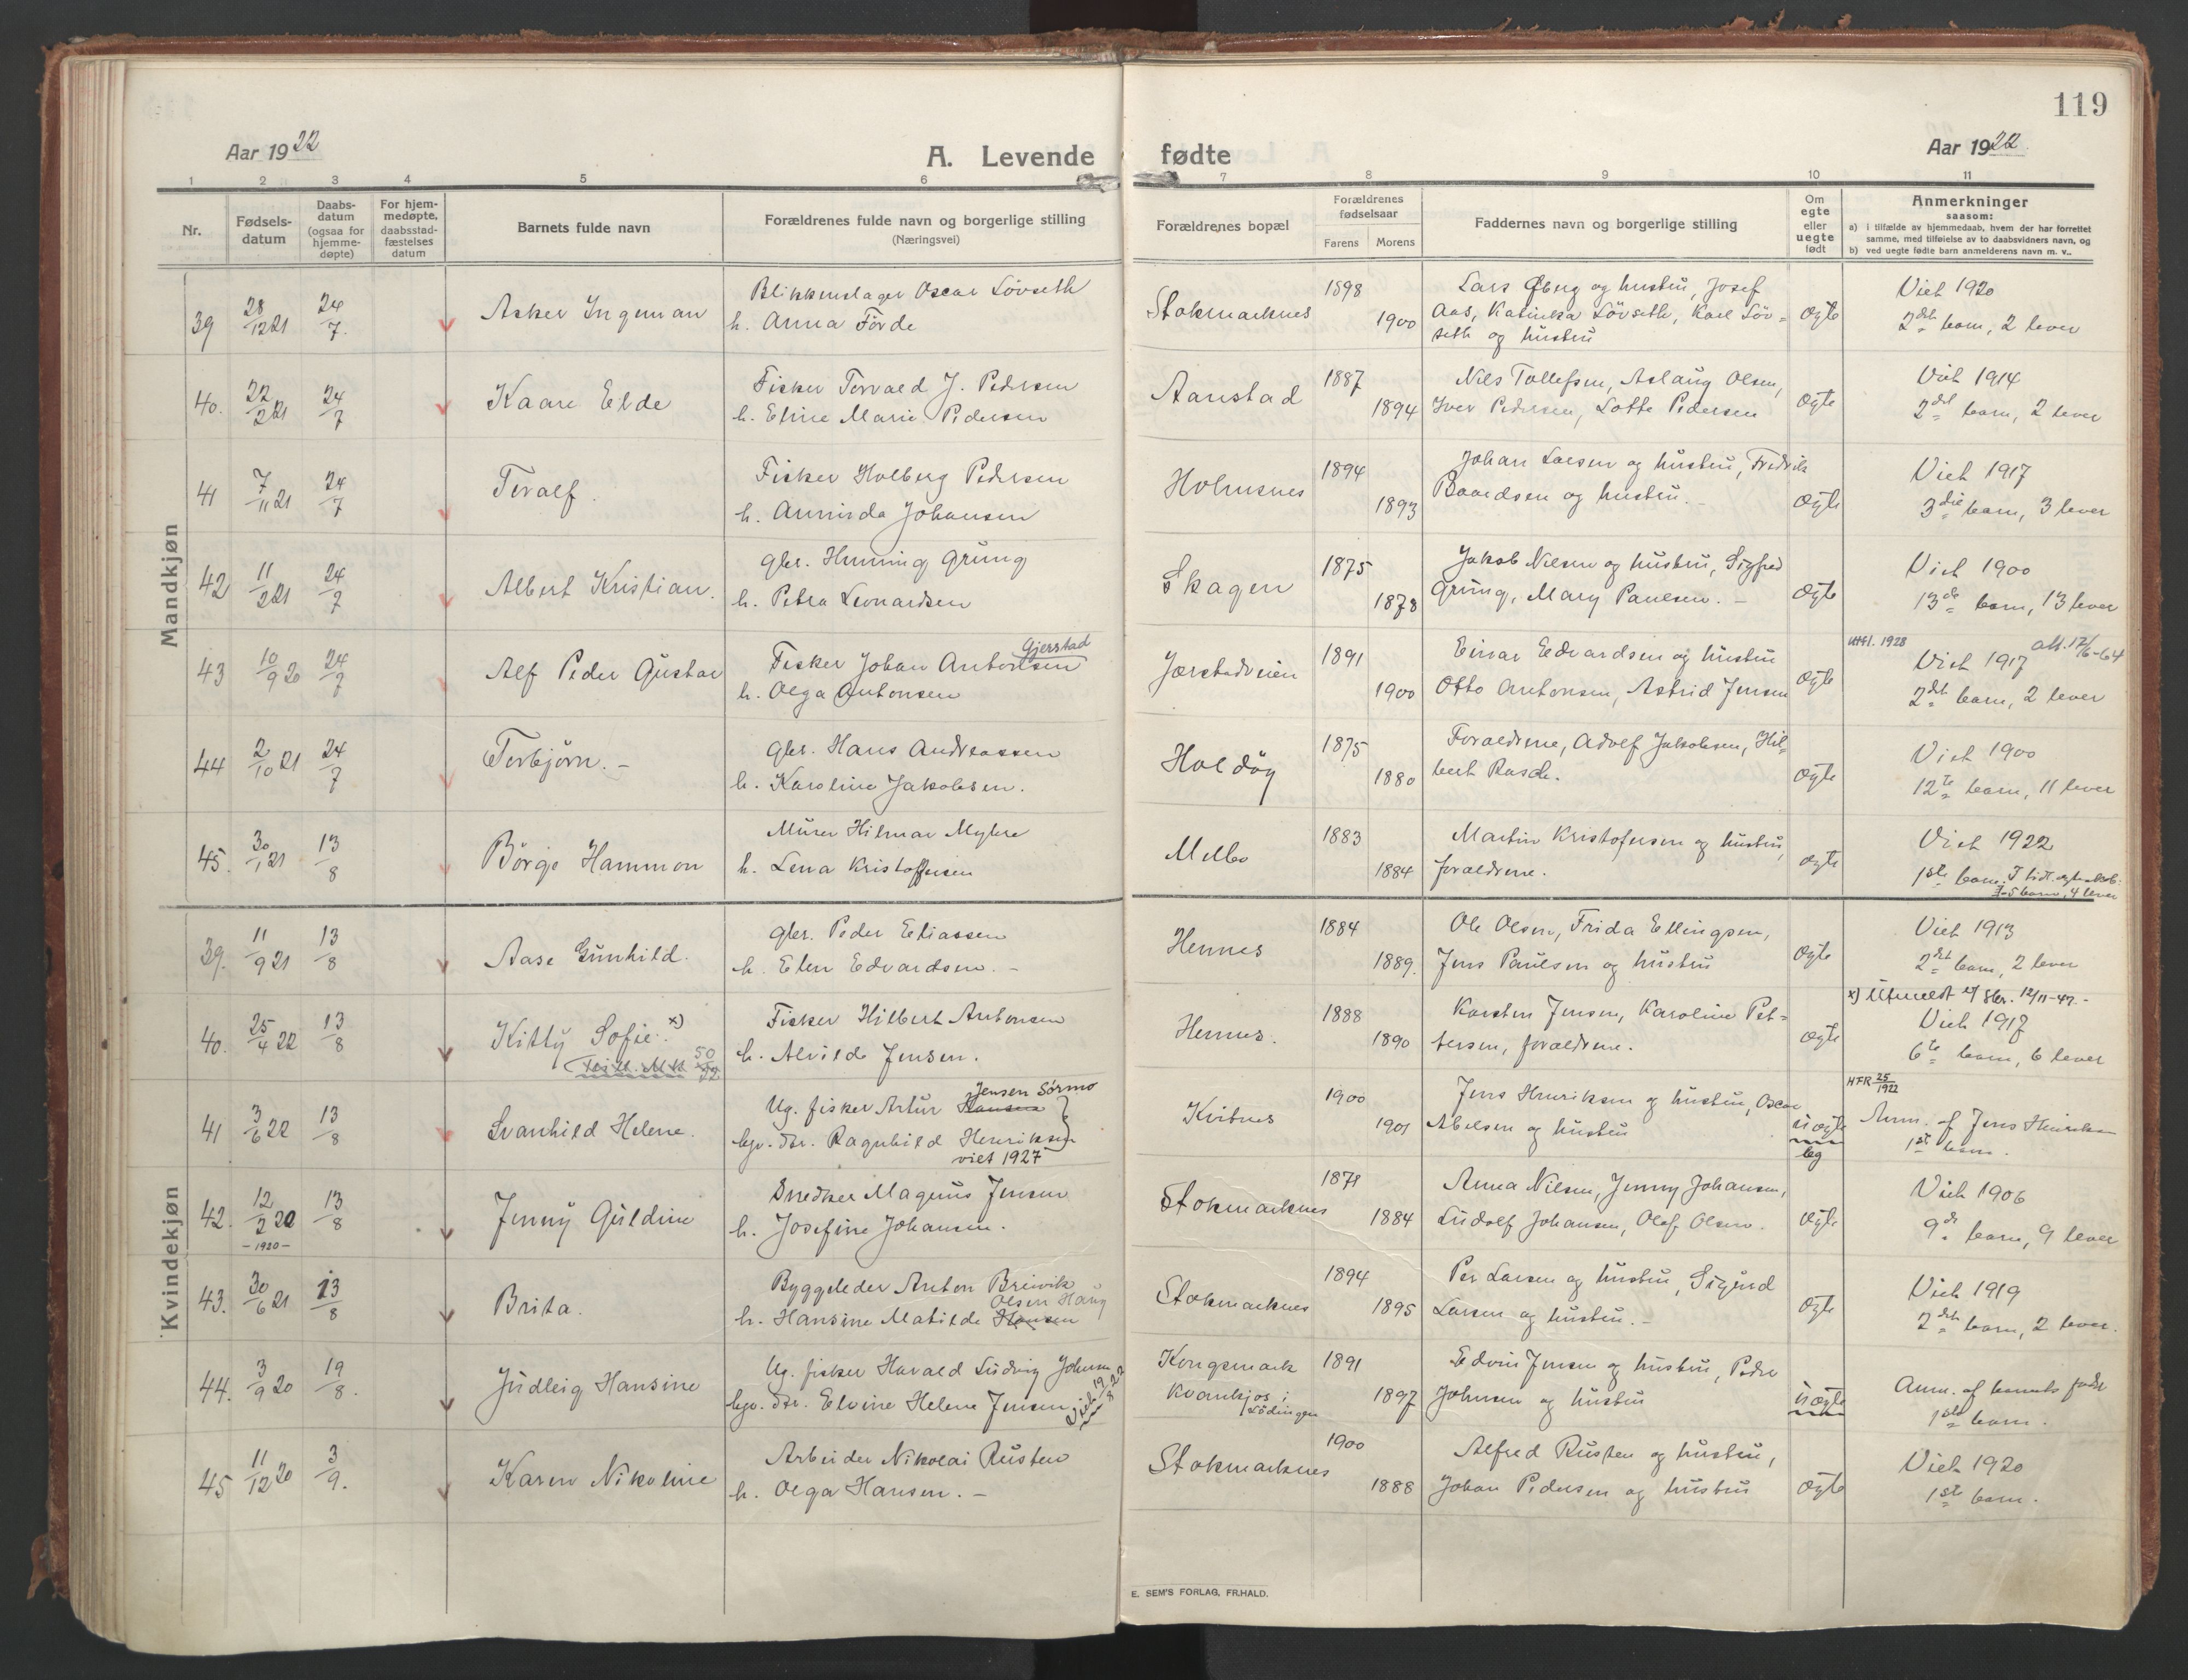 119
Aar 1922
A. Levende fødte
Aar 1922
1 2 3 4 5 6 7 8 9 10 11
Nr.
Fødsels-
datum
Daabs-
datum
(ogsaa for
hjemme-
døpte)
For hjem-
medøpte,
daabsstad-
fæstelses
datum
Barnets fulde navn
Forældrenes fulde navn og borgerlige stilling
(Næringsvei)
Forældrenes bopæl
Forældrenes
fødselsaar
Farens Morens
Faddernes navn og borgerlige stilling
Om
egte
eller
uegte
født
Anmerkninger
saasom:
a) i tilfælde av hjemmedaab, hvem der har forrettet
samme, med tilføielse av to daabsvidners navn, og
b) ved uegte fødte barn anmelderens navn m. v..
Mandkjøn
39 28/12 21 24/7. Asker Ingeman
Blikkenslager Oscar Lövseth
h. Anna Förde
Stokmarknes 1898 1900
Lars Öberg og hustru, Josef
Aas, Katinka Lövseth, Karl Löv=
seth og hustru
Egte
Viet 1920
2det barn, 2 lever
40. 22/2 21 24/7 Kaare Elde
Fisker Torvald J. Pedersen
h. Eline Marie Pedersen
Aanstad 1887 1894
Nils Tollefsen, Aslaug Olsen,
Iver Pedersen, Lotte Pedersen
Egte
Viet 1914
2det barn, 2 lever
41 7/11 21 24/7 Toralf.
Fisker Holberg Pedersen
h. Arninda Johansen
Holmsnes 1894 1893
Johan Larsen og hustru, Fredrik
Baardsen og hustru. -
Egte
Viet 1917
3die barn, 3 lever
42 11/2 21 24/7 Albert Kristian.
gbr. Henning Grüng
h. Petra Leonardsen
Skagen 1875 1878
Jakob Nilsen og hustru, Sigfred
Grüng, Mary Paulsen. -
Egte
Viet 1900
13de barn, 13 lever
43 10/9 20 24/7 Alf Peder Gustav
Gjerstad
Fisker Johan Antonsen
h. Olga Antonsen
Jærstadveien 1891 1900
Einar Edvardsen og hustru
Otto Antonsen, Astrid Jensen
Egte
Utfl. 1928 att. 12/6-64
Viet 1917
2det barn, 2 lever
44 2/10 21 24/7 Torbjørn. -
gbr. Hans Andreassen
h. Karoline Jakobsen.
Haldöy 1875 1880
Foraldrene, Adolf Jakobsen, Hil=
bert Rasch.
Egte
Viet 1900
12te barn, 11 lever
45. 30/1 21 13/8 Börge Hammon
Murer Hilmar Myhre
h. Lena Kristoffersen
Melbo 1883 1884
Martin Kristofersen og hustru,
foraldrene.
Egte
Viet 1922
1ste barn. I tidl. egteskab
5 barn, 4 lever
Kvindekjøn
39. 11/9 21 13/8 Aase Gunhild.
gbr. Peder Eliassen
h. Elen Edvardsen. -
Hennes 1884 1889.
Ole Olsen, Frida Ellingsen,
Jens Paulsen og hustru
Egte
Viet 1913
2det barn, 2 lever
40. 25/4 22 13/8 Kitty Sofie. x)
50/52
Fisker Hilbert Antonsen
h. Alvilde Jensen.
Hennes. 1888 1890
Karsten Jensen, Karoline Pet=
tersen, foraldrene.
Egte
x) Utmeldt 12/11-47. -
Viet 1917
6te barn, 6 lever
41 3/6 22 13/8 Svanhild Helene.
Jensen Sörmo
Ug. fisker Artur Hansen
bgr. dtr. Ragnhild Henriksen
viet 1927
Kvitnes 1900 1901
Jens Henriksen og hustru, Oscar
Abelsen og hustru
uegte
eg
HFR 25/1922
Anm. af Jens Henriksen
1ste barn.
42. 12/2 20 13/8 Jenny Guldine
- 1920 -
Snedker Magnus Jensen
h. Josefine Johansen.
Stokmarknes 1878 1884
Anna Nilsen, Jenny Johansen,
Ludolf Johansen, Olaf Olsen.
Egte
Viet 1906
9de barn, 9 lever
43. 30/6 21 13/8 Brita.
Byggeleder Anton Breivik
Olsen Haug
h. Hansine Matilde Hansen
Stokmarknes 1894 1895
Per Larsen og hustru, Sigurd
Larsen og hustru. -
Egte
Viet 1919
2det barn, 2 lever.
44. 3/9 20 19/8. Judleig Hansine
Ug. fisker Harald Ludvig Johnsen
bgr. dtr. Elvine Helene Jensen
viet 19/8 22
Kongsmark
Kvankjos i
Lödingen
1891 1897
Edvin Jensen og hustru, Peder
Johnsen og hustru
uegte
Anm. af barnets fader
1ste barn.
45 11/12 20 3/9. Karen Nikoline
Arbeider Nikolai Rusten
h. Olga Hansen. -
Stokmarknes 1900 1888
Alfred Rusten og hustru,
Johan Pedersen og hustru
Egte
Viet 1920
1ste barn.
E. SEM'S FORLAG, FR.HALD.